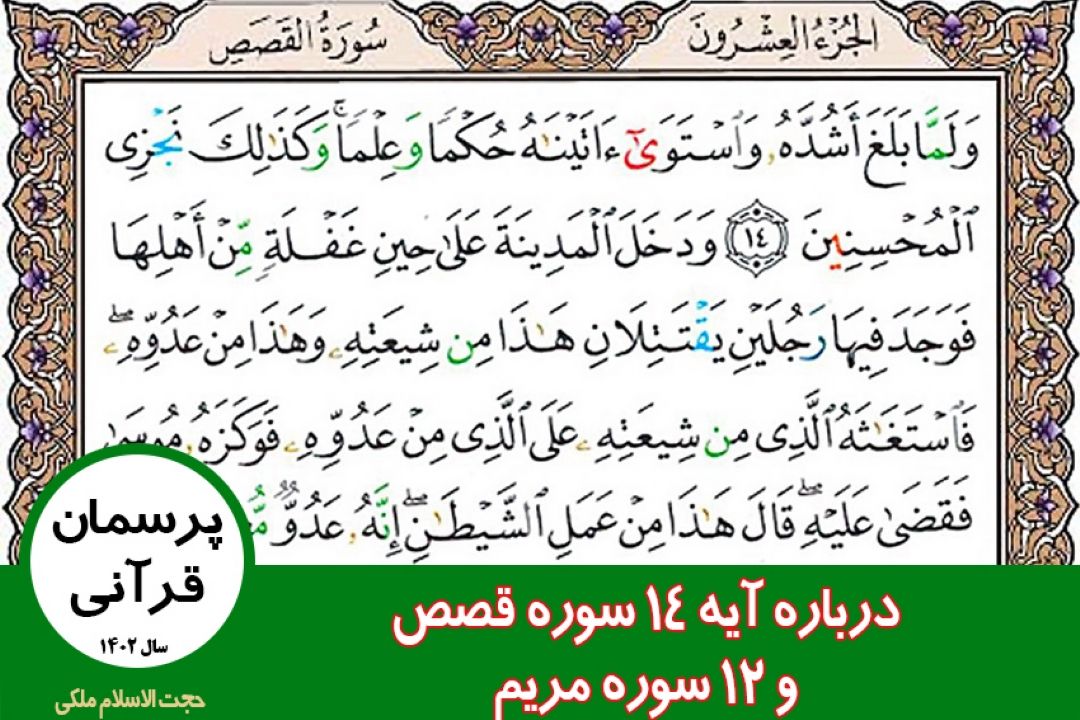 الجُزْءُ العِشْرُونَ
سُورَةُ القَصَصِ
وَلَمَّا بَلَغَ أَشُدَّهُۥ وَٱسۡتَوَىٰٓ ءَاتَيۡنَٰهُ حُكۡمٗا وَعِلۡمٗاۚ وَكَذَٰلِكَ نَجۡزِي
ٱلۡمُحۡسِنِينَ ١٤ وَدَخَلَ ٱلۡمَدِينَةَ عَلَىٰ حِينِ غَفۡلَةٖ مِّنۡ أَهۡلِهَا
فَوَجَدَ فِيهَا رَجُلَيۡنِ يَقۡتَتِلَانِ هَٰذَا مِن شِيعَتِهِۦ وَهَٰذَا مِنۡ عَدُوِّهِۦۖ
فَٱسۡتَغَٰثَهُ ٱلَّذِي مِن شِيعَتِهِۦ عَلَى ٱلَّذِي مِنۡ عَدُوِّهِۦ فَوَكَزَهُۥ مُوسَىٰ
فَقَضَىٰ عَلَيۡهِۖ قَالَ هَٰذَا مِنۡ عَمَلِ ٱلشَّيۡطَٰنِۖ إِنَّهُۥ عَدُوّٞ
پرسمان
قرآنی
سال ۱۴۰۲
حجت الاسلام ملکی
درباره آیه ١٤ سوره قصص
و ۱۲ سوره مریم